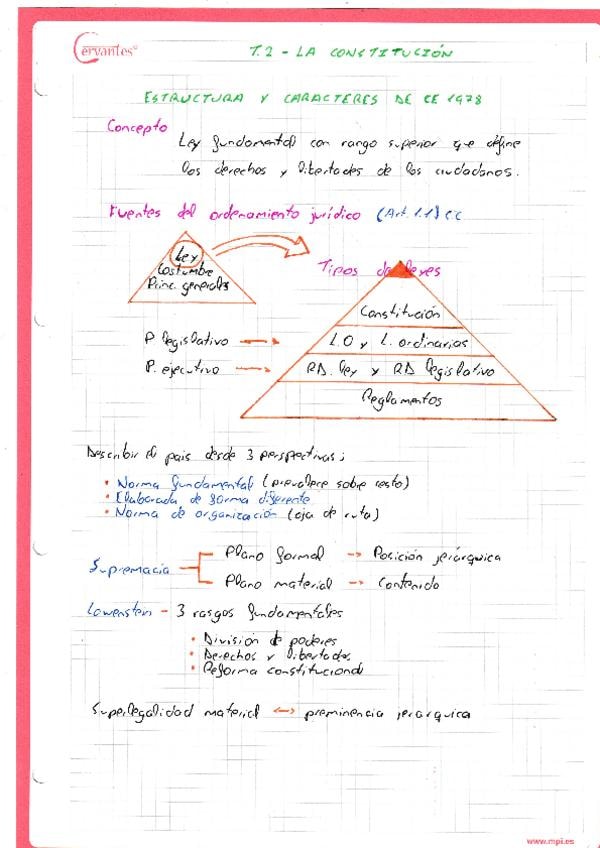 Cervantes®
T.2 - LA CONSTITUCIÓN
ESTRUCTURA Y CARACTERES DE CE 1978
Concepto
Ley fundamental con rango superior que define
los derechos y libertades de los ciudadanos.
Fuentes del ordenamiento jurídico (Art 1.1) CC
Ley
Costumbre
Princ. generales
Tipos de leyes
Constitución
P. legislativo → L.O y L. ordinarias
P. ejecutivo → RD. ley y RD legislativo
Reglamentos
Describir el pais desde 3 perspectivas:
• Norma fundamental (prevalece sobre resto)
• Elaborada de forma diferente
• Norma de organización (oja de ruta)
Supremacia
Plano formal → Posición jerárquica
Plano material → Contenido
Lowenstein - 3 rasgos fundamentales
• División de poderes
• Derechos y libertades
• Reforma constitucional
Superlegalidad material ↔ preminencia jerarquica
www.mpi.es